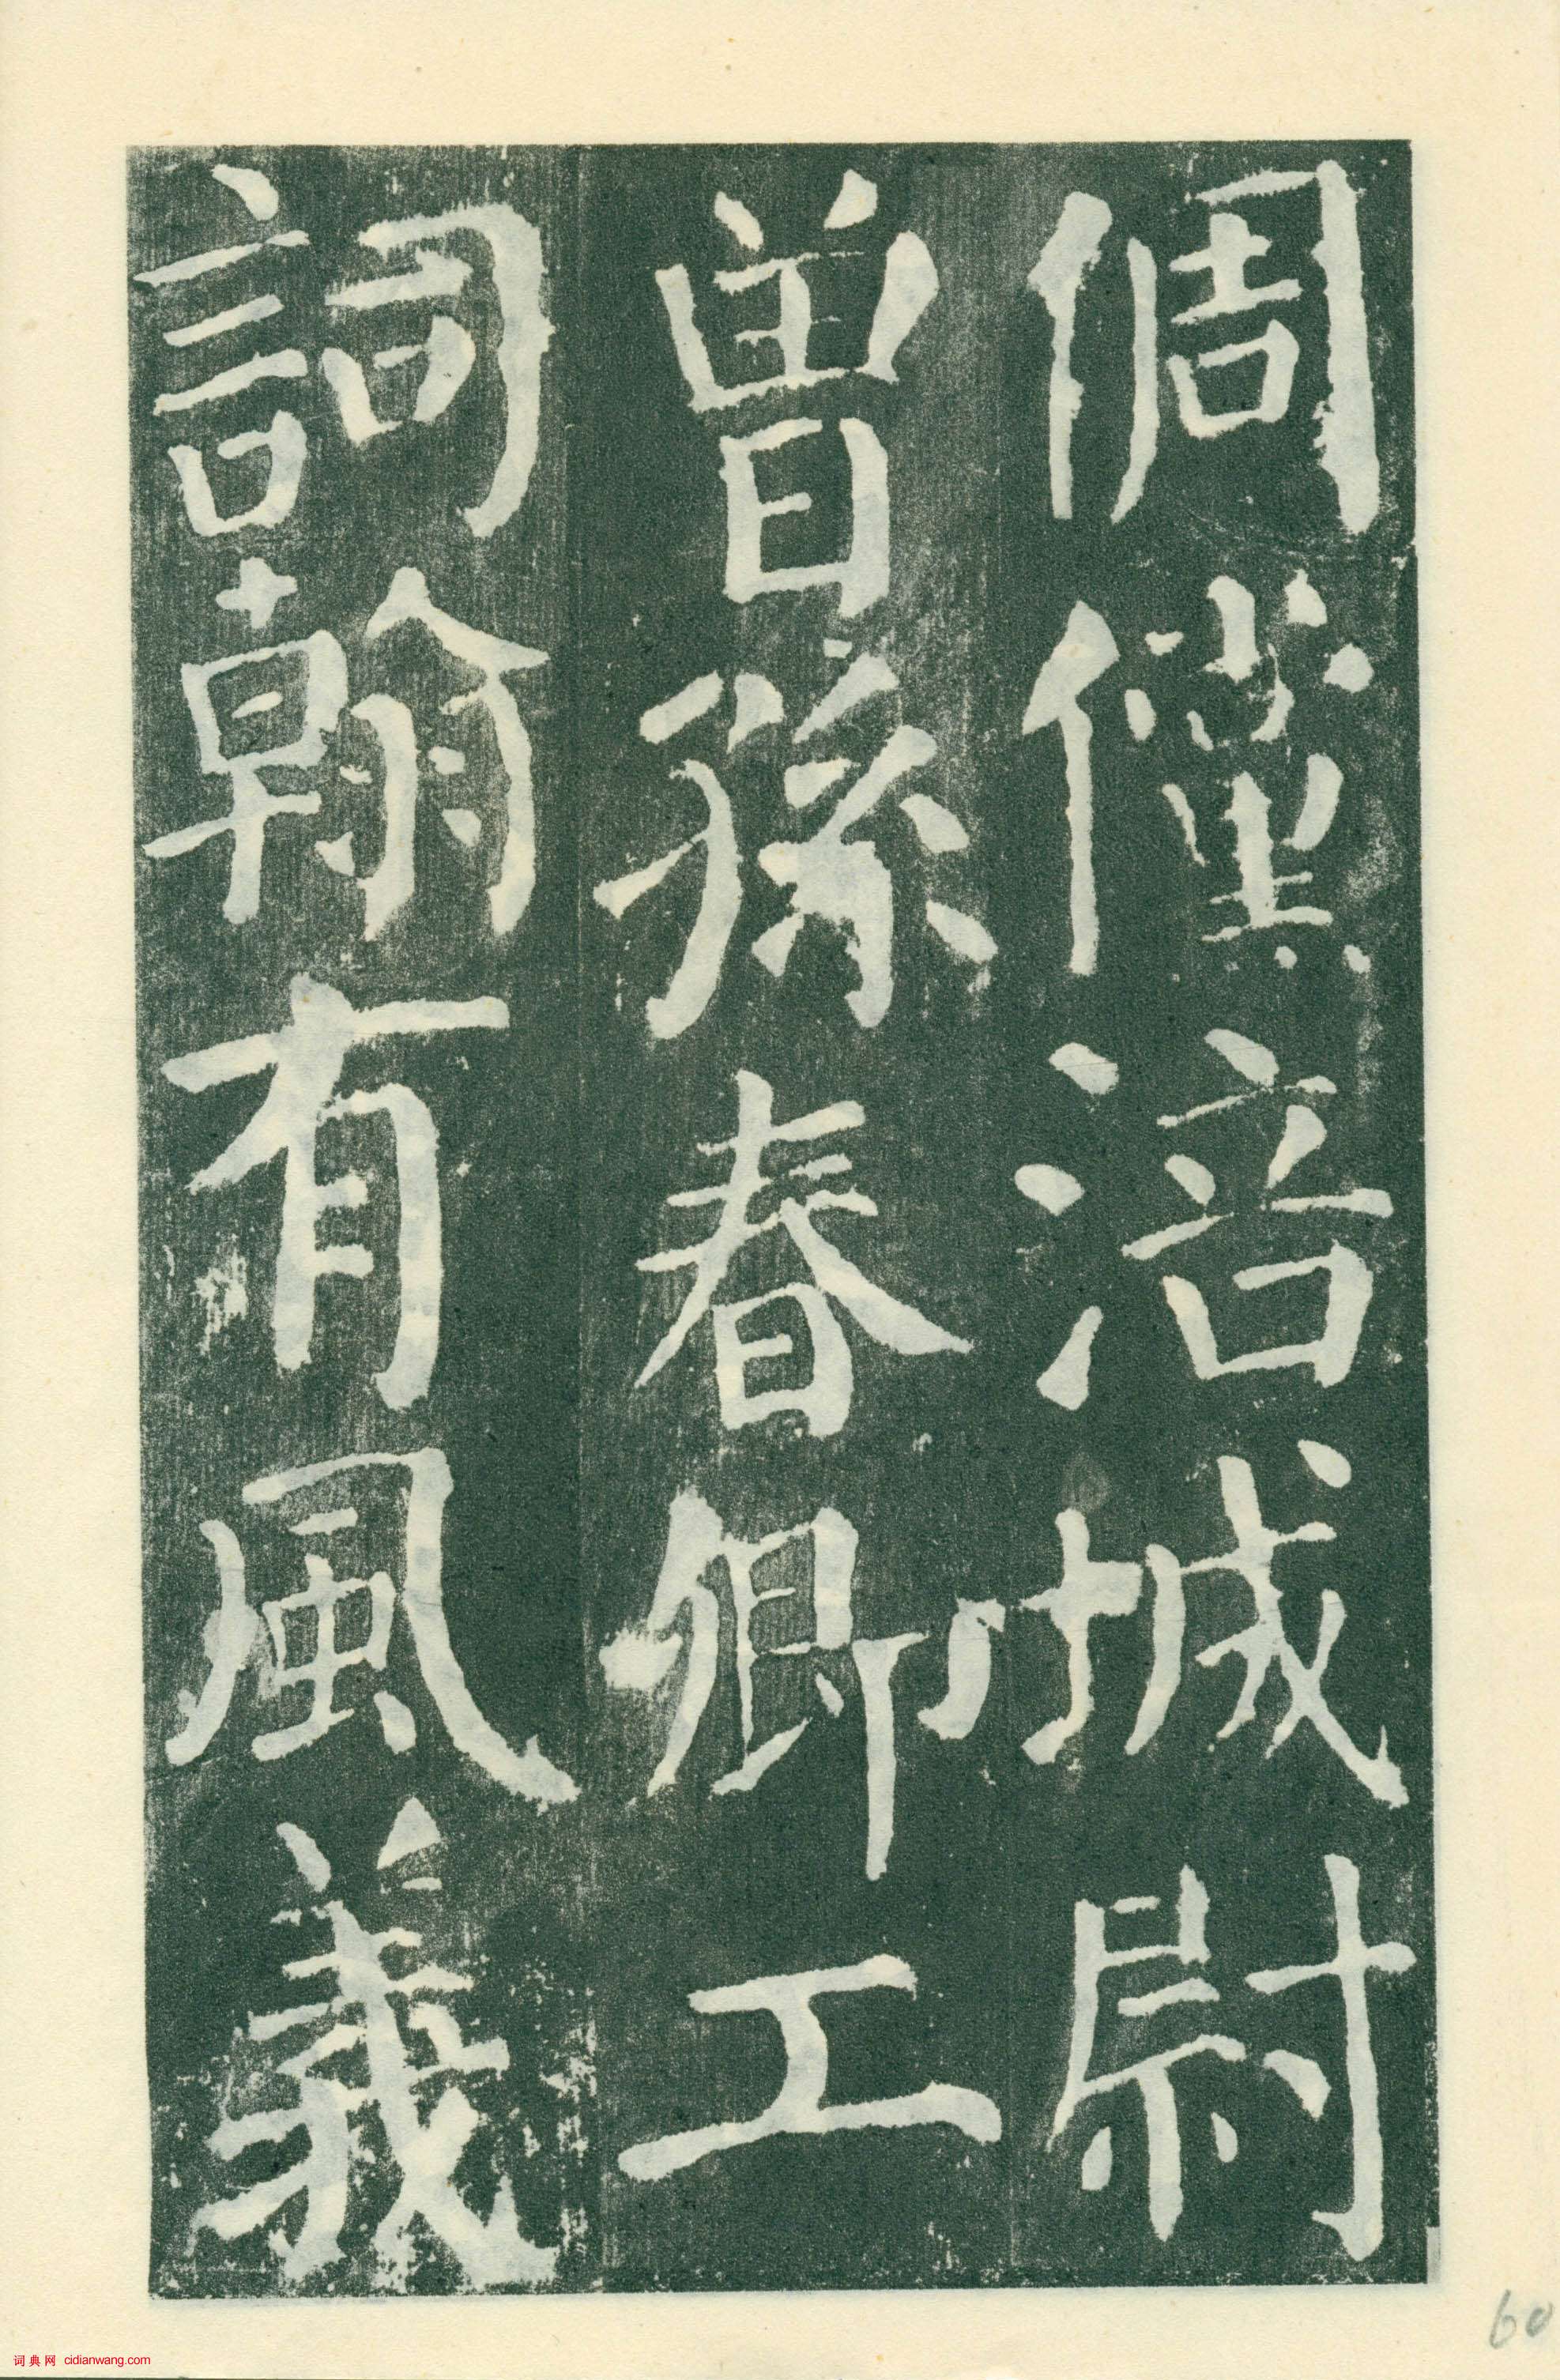 倜儻涪城尉
曾孫春卿工
詞翰有風義
60
词典网 cidianwang.com